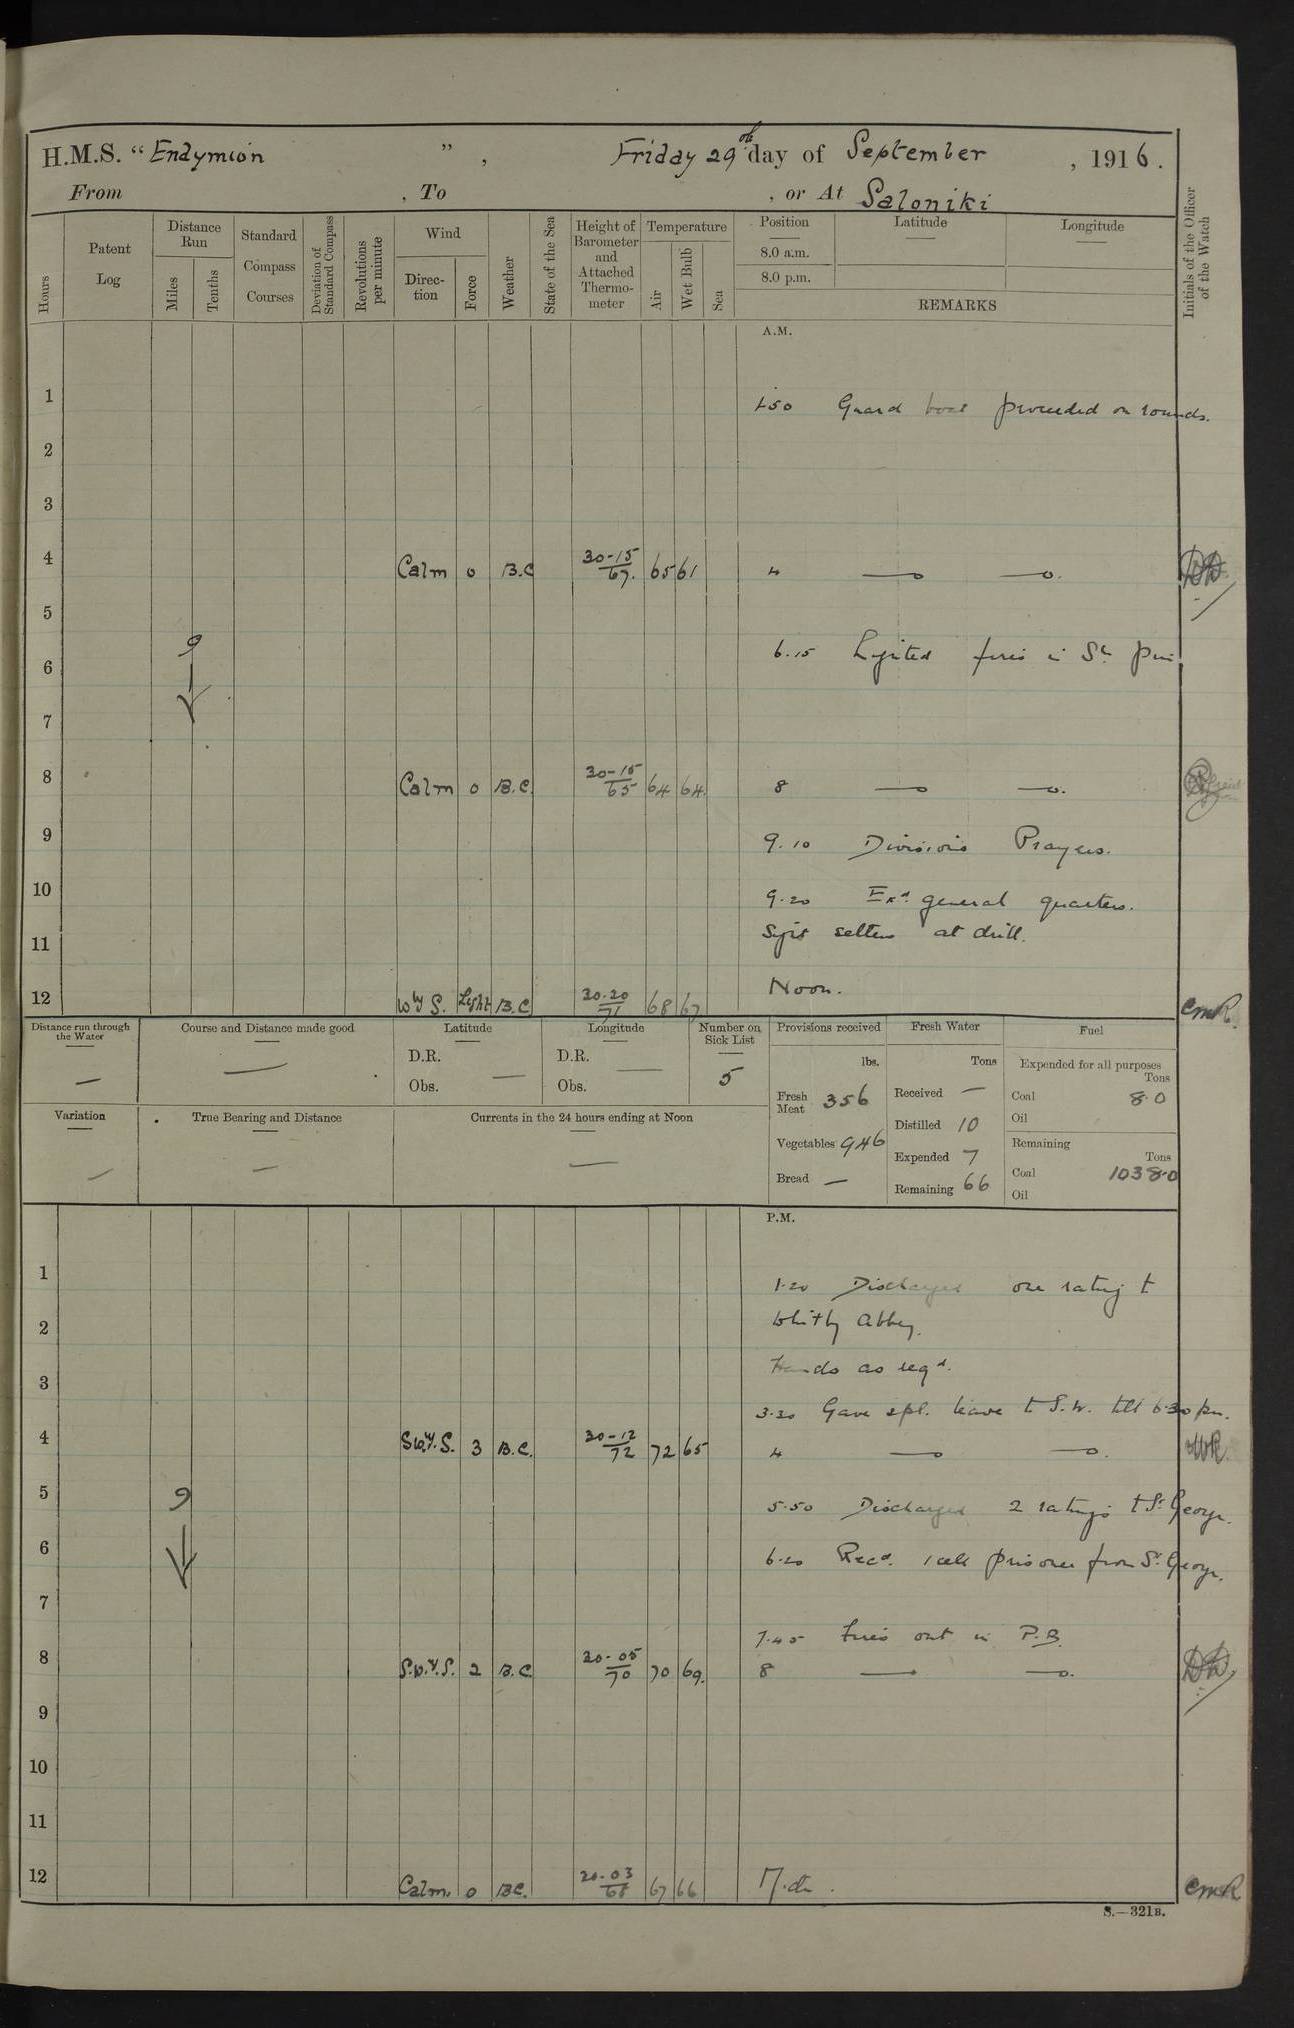 H.M.S. "Endymion", Friday 29th day of September, 1916.
From , To , or At Saloniki
Hours Patent Log Distance Run Miles Tenths Standard Compass Courses Deviation of Standard Compass Revolutions per minute Wind Direction Force Weather State of the Sea Height of Barometer and Attached Thermometer Temperature Air Wet Bulb Sea Position Latitude Longitude Initials of the Officer of the Watch
8.0 a.m.
8.0 p.m.
REMARKS
A.M.
1 1.50 Guard boat proceeded on rounds.
2
3
4 Calm 0 B.C 30-15 67. 65 61 4
5
6 9 6.15 Lighted fires in
7
8 Calm 0 B.C. 30-15 65 64 64. 8
9 9.10 Divisions Prayers.
10 9.20 Exd general quarters.
11 Sight setters at drill.
12 Wly S. Light B.C 30.20 71 68 67 Noon. CMR.
Distance run through the Water Course and Distance made good Latitude Longitude Number on Sick List Provisions received Fresh Water Fuel
D.R. D.R. lbs. Tons Expended for all purposes Tons
Obs. — Obs. — 5 Fresh Meat 356 Received — Coal 8.0
Variation True Bearing and Distance Currents in the 24 hours ending at Noon Distilled 10 Oil
Vegetables 946 Expended 7 Remaining Tons
Bread — Remaining 66 Coal 1038.0
Oil
P.M.
1 1.20 Discharged one rating to
2 Whitby Abbey.
Hands as reqd.
3 3.30 Gave spl. leave to S.W. till 6.30 pm.
4 SW.y.S. 3 B.C. 30-12 72 72 65 4
5 9 5.50 Discharged 2 ratings to St George.
6 6.20 Recd. 1 cell prisoner from St George.
7 7.45 Fires out in P.B.
8 S.W.y.S. 2 B.C 30-05 70 70 69. 8
9
10
11
12 Calm. 0 BC. 30-03 68 67 66 CMR
S.—321B.